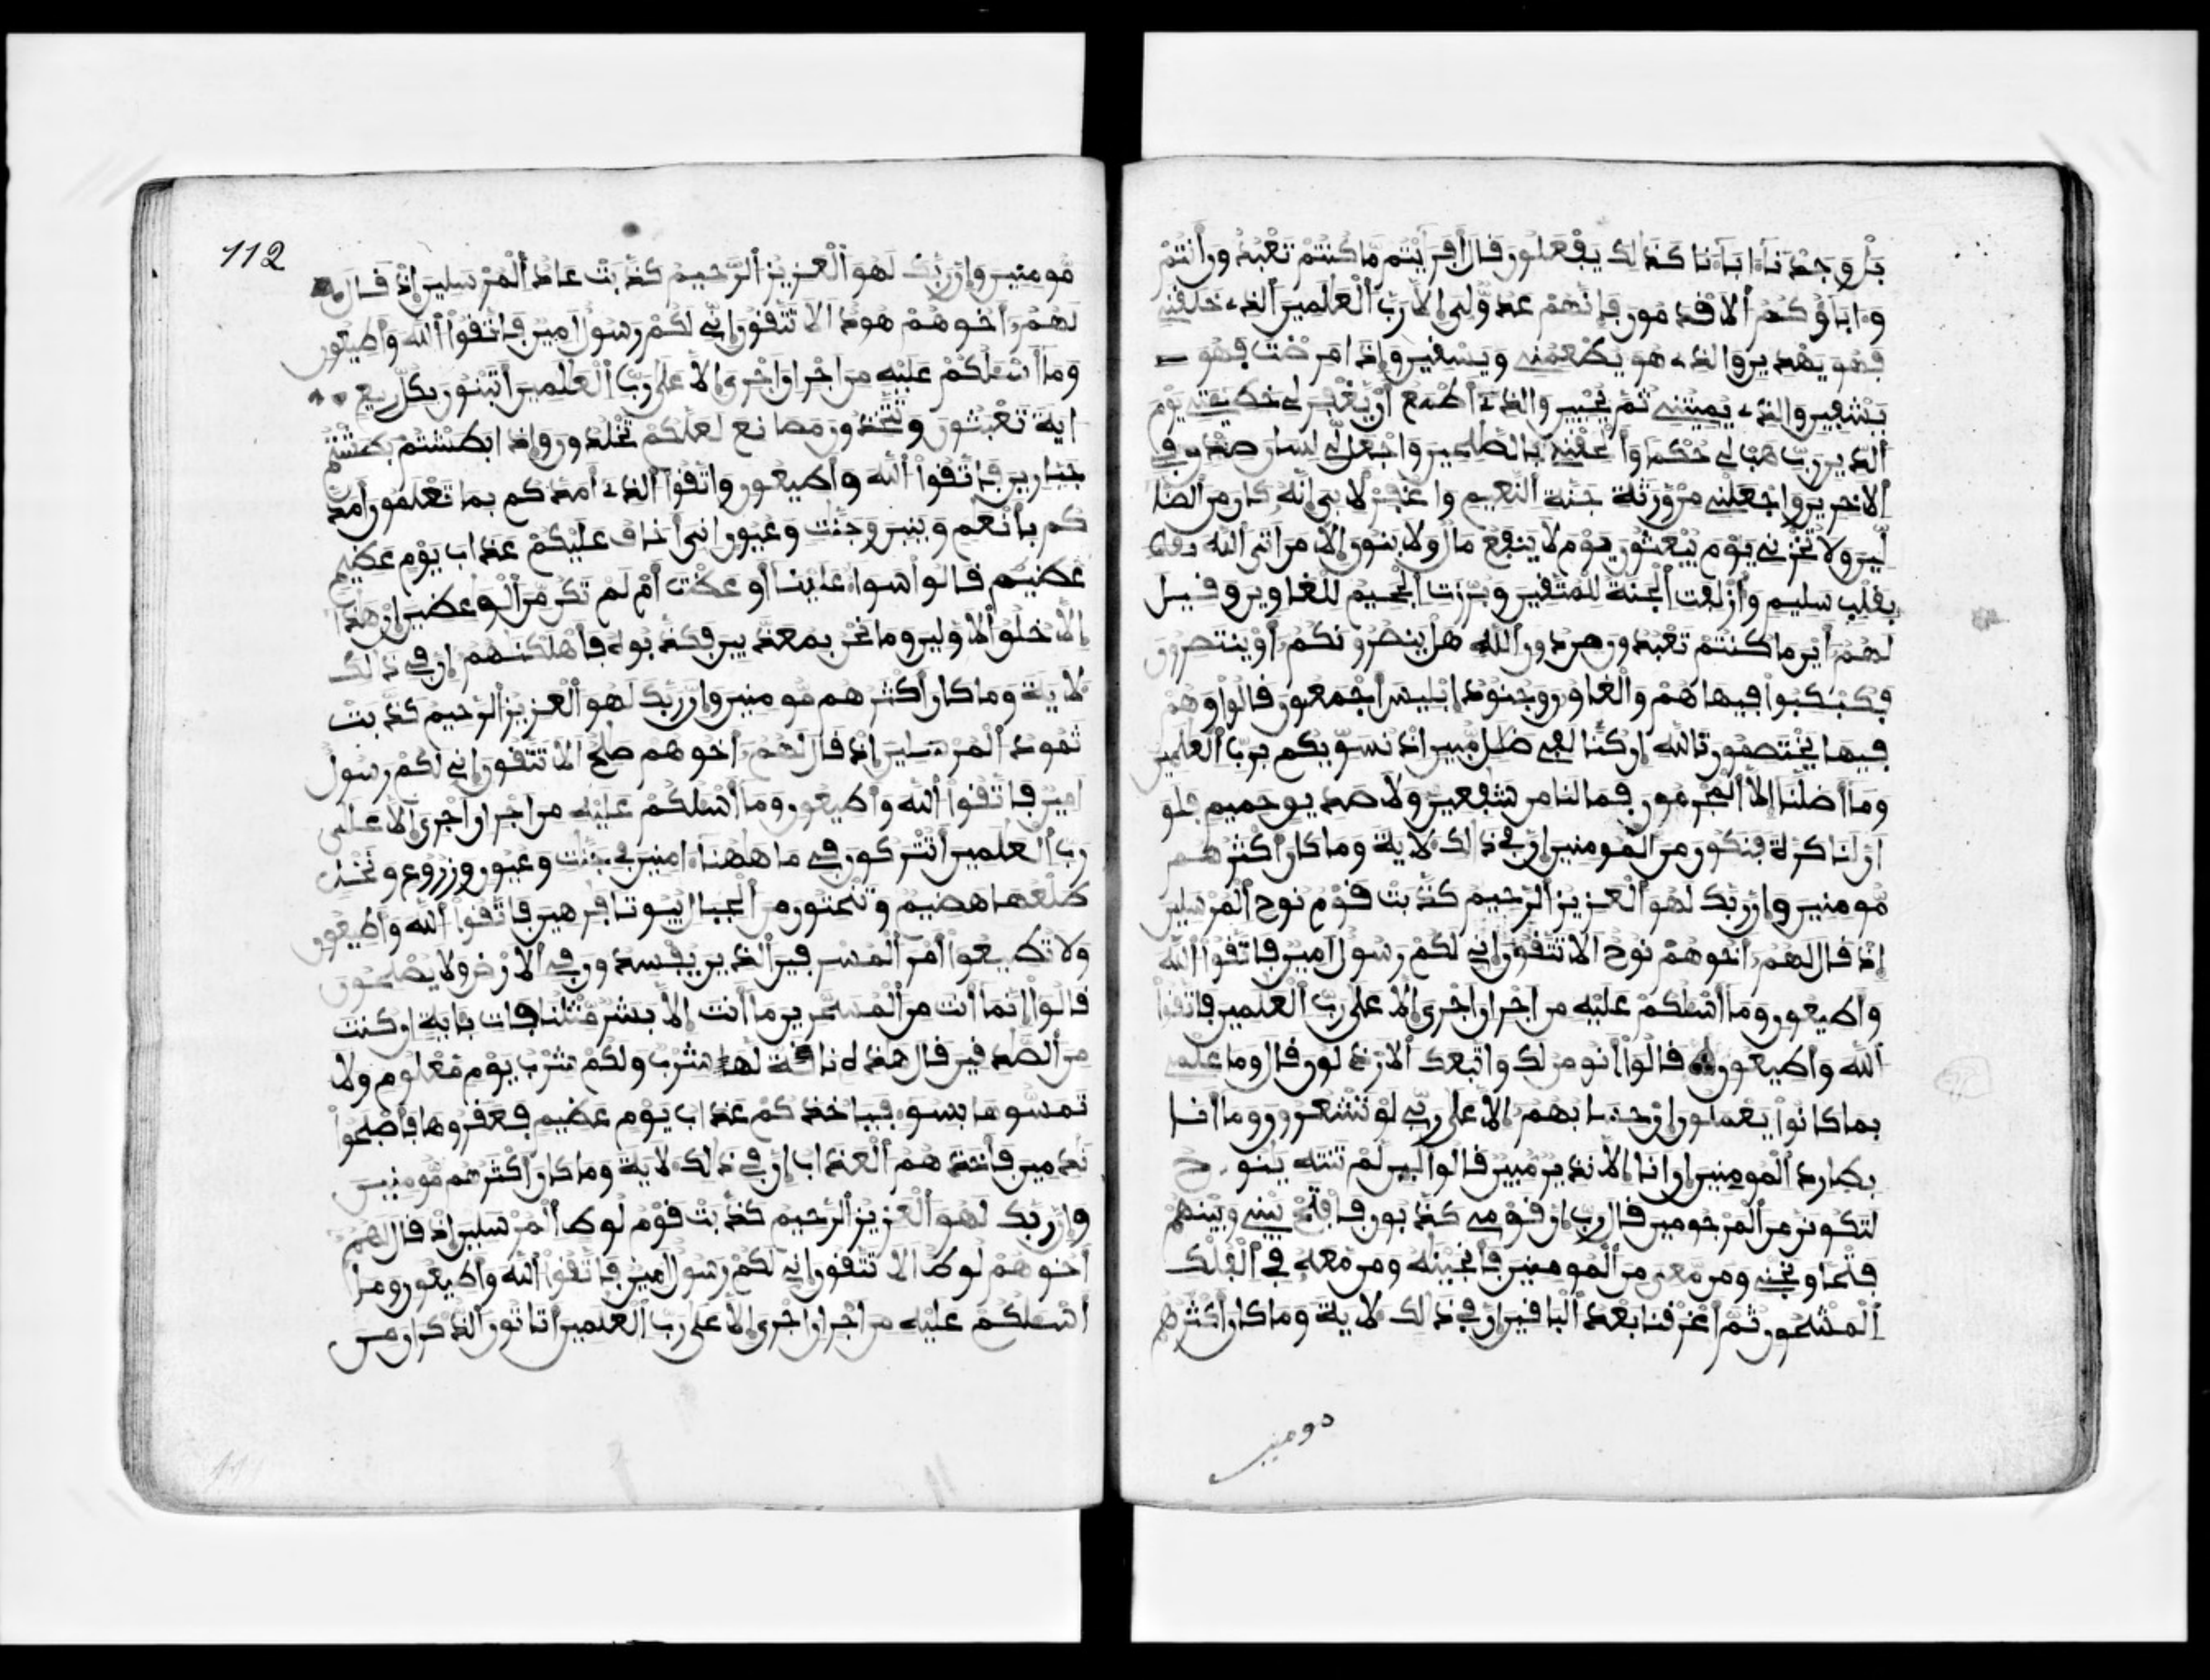 بل وجدنا ءاباءنا كذلك يفعلون قال أفريتم ما كنتم تعبدون أنتم
وءاباؤكم الاقدمون فإنهم عدو لي إلا رب العلمين الذي خلقني
فهو يهدين والذي هو يطعمني ويسقين وإذا مرضت فهو
يشفين والذي يميتني ثم يحيين والذي أطمع أن يغفر لي خطيئتي يوم
الدين رب هب لي حكما وألحقني بالصلحين واجعل لي لسان صدق في
الاخرين واجعلني من ورثة جنة النعيم واغفر لابي إنه كان من الضا
لين ولا تخزني يوم يبعثون يوم لا ينفع مال ولا بنون إلا من اتى الله
بقلب سليم وأزلفت الجنة للمتقين وبرزت الجحيم للغاوين وقيل
لهم أين ما كنتم تعبدون من دون الله هل ينصرونكم أو ينتصرون
فكبكبوا فيها هم والغاوون وجنود إبليس أجمعون قالوا وهم
فيها يختصمون تالله إن كنا لفي ضلل مبين إذ نسويكم برب العلمين
وما أضلنا إلا المجرمون فما لنا من شفعين ولا صديق حميم فلو
أن لنا كرة فنكون من المومنين إن في ذلك لاية وما كان أكثرهم
مومنين وإن ربك لهو العزيز الرحيم كذبت قوم نوح المرسلين
إذ قال لهم أخوهم نوح الا تتقون إني لكم رسول امين فاتقوا الله
وأطيعون وما أسلكم عليه من اجر ان اجري إلا على رب العلمين فاتقوا
الله وأطيعون قالوا أنومن لك واتبعك الارذلون قال وما علمي
بما كانوا يعملون إن حسابهم إلا على ربي لو تشعرون وما أنا
بطارد المومنين ان انا إلا نذير مبين قالوا لين لم تنته ينوح
لتكونن من المرجومين قال رب إن قومي كذبون فافتح بيني وبينهم
فتحا ونجني ومن معي من المومنين فأنجينه ومن معه في الفلك
المشحون ثم أغرقنا بعد الباقين إن في ذلك لاية وما كان أكثرهم
مومنين
112
مومنين وإن ربك لهو العزيز الرحيم كذبت عاد المرسلين إذ قال
لهم أخوهم هود الا تتقون إني لكم رسول امين فاتقوا الله وأطيعون
وما أسلكم عليه من اجر ان اجري إلا على رب العلمين أتبنون بكل ريع
اية تعبثون وتتخذون مصانع لعلكم تخلدون وإذا بطشتم بطشتم
جبارين فاتقوا الله وأطيعون واتقوا الذي أمدكم بما تعلمون أمد
كم بأنعم وبنين وجنت وعيون اني أخاف عليكم عذاب يوم عظيم
عظيم قالوا سواء علينا أوعظت أم لم تكن من الوعظين ان هذا
إلا خلق الاولين وما نحن بمعذبين فكذبوه فأهلكنهم إن في ذلك
لاية وما كان أكثرهم مومنين وإن ربك لهو العزيز الرحيم كذبت
ثمود المرسلين إذ قال لهم أخوهم صلح الا تتقون إني لكم رسول
امين فاتقوا الله وأطيعون وما أسلكم عليه من اجر ان اجري إلا على
رب العلمين أتتركون في ما ههنا ءامنين في جنت وعيون وزروع ونخل
طلعها هضيم وتنحتون من الجبال بيوتا فرهين فاتقوا الله وأطيعون
ولا تطيعوا أمر المسرفين الذين يفسدون في الارض ولا يصلحون
قالوا إنما أنت من المسحرين ما أنت إلا بشر مثلنا فات باية ان كنت
من الصدقين قال هذه ناقة لها شرب ولكم شرب يوم معلوم ولا
تمسوها بسوء فياخذكم عذاب يوم عظيم فعقروها فأصبحوا
ندمين فأخذهم العذاب إن في ذلك لاية وما كان أكثرهم مومنين
وإن ربك لهو العزيز الرحيم كذبت قوم لوط المرسلين إذ قال لهم
أخوهم لوط الا تتقون إني لكم رسول امين فاتقوا الله وأطيعون وما
أسلكم عليه من اجر ان اجري إلا على رب العلمين أتاتون الذكران من